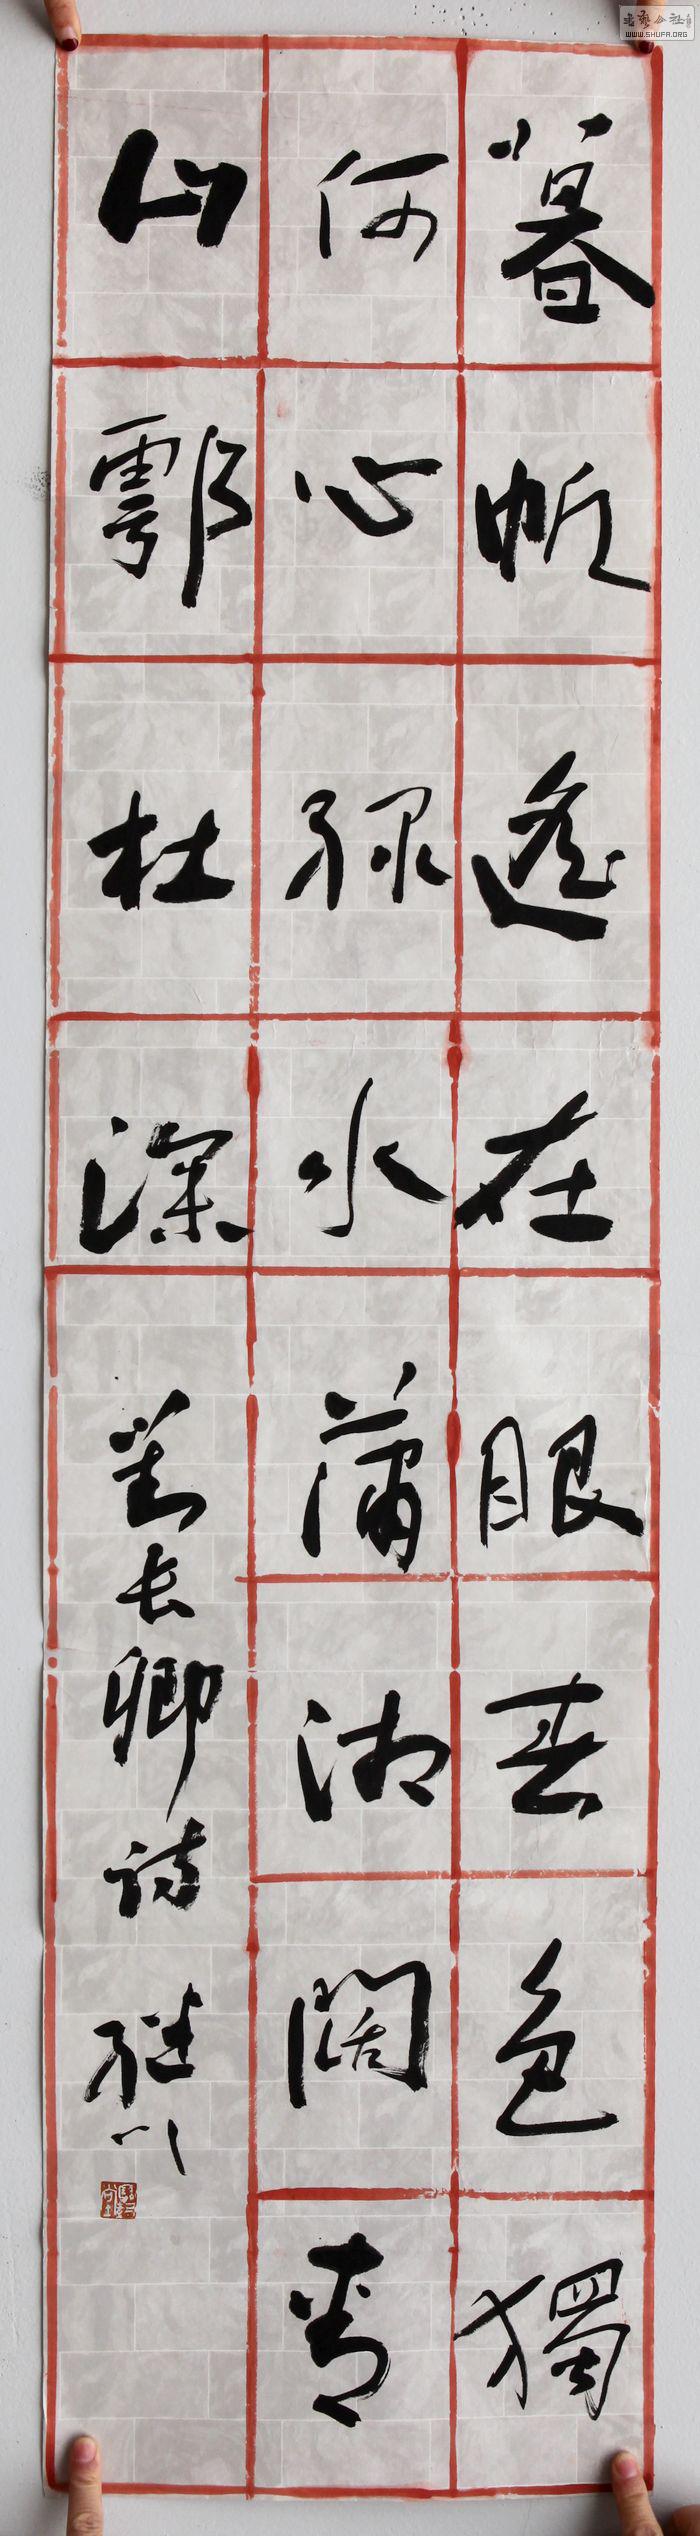 暮帆遙在眼春色獨
何心綠水瀟湘闊青
山鄠杜深
劉長卿詩
書藝公社
WWW.SHUFA.ORG